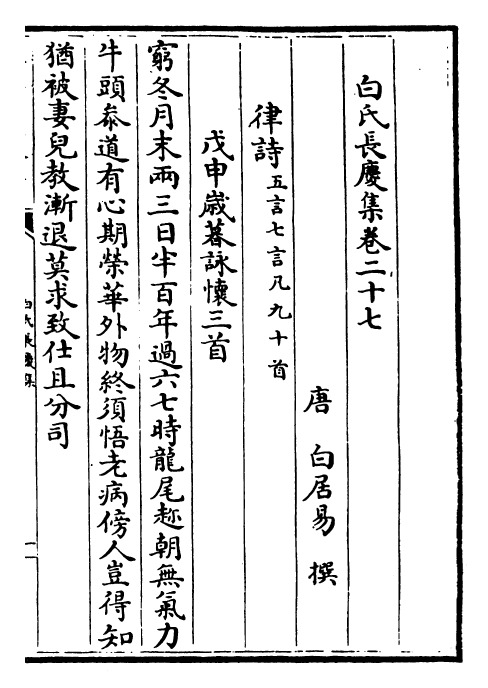 白氏長慶集卷二十七
唐　白居易　撰
律詩五言七言凡九十首
戊申歲暮詠懷三首
窮冬月末兩三日半百年過六七時龍尾趂朝無氣力
牛頭叅道有心期榮華外物終須悟老病傍人豈得知
猶被妻兒教漸退莫求致仕且分司
白氏長慶集
一